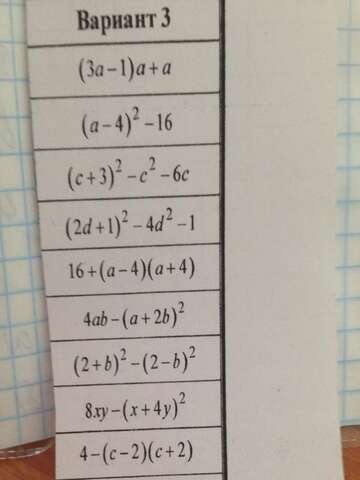 Вариант 3
(3a−1)a+a
(a−4)²−16
(c+3)²−c²−6c
(2d+1)²−4d²−1
16+(a−4)(a+4)
4ab−(a+2b)²
(2+b)²−(2−b)²
8xy−(x+4y)²
4−(c−2)(c+2)